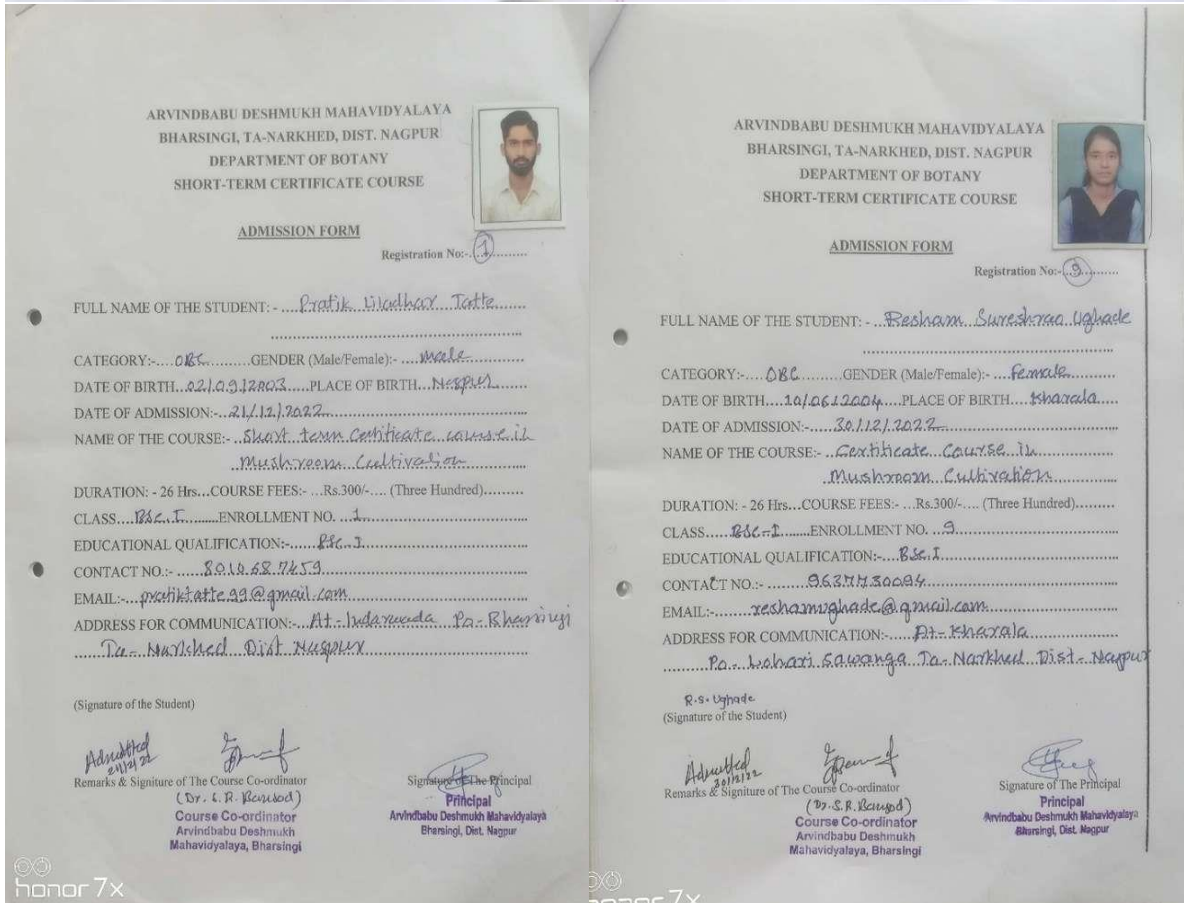 ARVINDBABU DESHMUKH MAHAVIDYALAYA
BHARSINGI, TA-NARKHED, DIST. NAGPUR
DEPARTMENT OF BOTANY
SHORT-TERM CERTIFICATE COURSE
ADMISSION FORM
Registration No:-..1..........
FULL NAME OF THE STUDENT: - ....Pratik Liladhar Tatte......
CATEGORY:-....OBC.........GENDER (Male/Female):- ....Male............
DATE OF BIRTH...02/09/2003....PLACE OF BIRTH...Nagpur......
DATE OF ADMISSION:-...21/12/2022......
NAME OF THE COURSE:- ..Short term Certificate course in
Mushroom Cultivation
DURATION: - 26 Hrs...COURSE FEES:- ...Rs.300/-.... (Three Hundred).........
CLASS....BSc.I........ENROLLMENT NO. ...1......
EDUCATIONAL QUALIFICATION:-......BSc.I......
CONTACT NO.:- ......8010687459......
EMAIL:-...pratiktatte99@gmail.com......
ADDRESS FOR COMMUNICATION:-...At-Indarwada Po-Bharsingi
Ta- Narkhed Dist Nagpur
(Signature of the Student)
Admitted
21/12/22
Remarks & Signiture of The Course Co-ordinator
(Dr. S. R. Bansod)
Course Co-ordinator
Arvindbabu Deshmukh
Mahavidyalaya, Bharsingi
Signature of The Principal
Principal
Arvindbabu Deshmukh Mahavidyalaya
Bharsingi, Dist. Nagpur
honor 7x
ARVINDBABU DESHMUKH MAHAVIDYALAYA
BHARSINGI, TA-NARKHED, DIST. NAGPUR
DEPARTMENT OF BOTANY
SHORT-TERM CERTIFICATE COURSE
ADMISSION FORM
Registration No:-..9..........
FULL NAME OF THE STUDENT: - ...Resham Sureshrao Ughade
CATEGORY:-....OBC.........GENDER (Male/Female):- ....Female.........
DATE OF BIRTH....10/06/2004....PLACE OF BIRTH....Kharala......
DATE OF ADMISSION:-......30/12/2022......
NAME OF THE COURSE:- ...Certificate Course in
Mushroom Cultivation
DURATION: - 26 Hrs...COURSE FEES:- ...Rs.300/-.... (Three Hundred).........
CLASS......BSC-I.......ENROLLMENT NO. ...9......
EDUCATIONAL QUALIFICATION:-....BSc.I......
CONTACT NO.:- ........9637730094......
EMAIL:-........reshamughade@gmail.com......
ADDRESS FOR COMMUNICATION:-......At-Kharala
Po- Lohari Sawanga Ta- Narkhed Dist- Nagpur
R.S. Ughade
(Signature of the Student)
Admitted
30/12/22
Remarks & Signiture of The Course Co-ordinator
(Dr. S.R. Bansod)
Course Co-ordinator
Arvindbabu Deshmukh
Mahavidyalaya, Bharsingi
Signature of The Principal
Principal
Arvindbabu Deshmukh Mahavidyalaya
Bharsingi, Dist. Nagpur
honor 7x